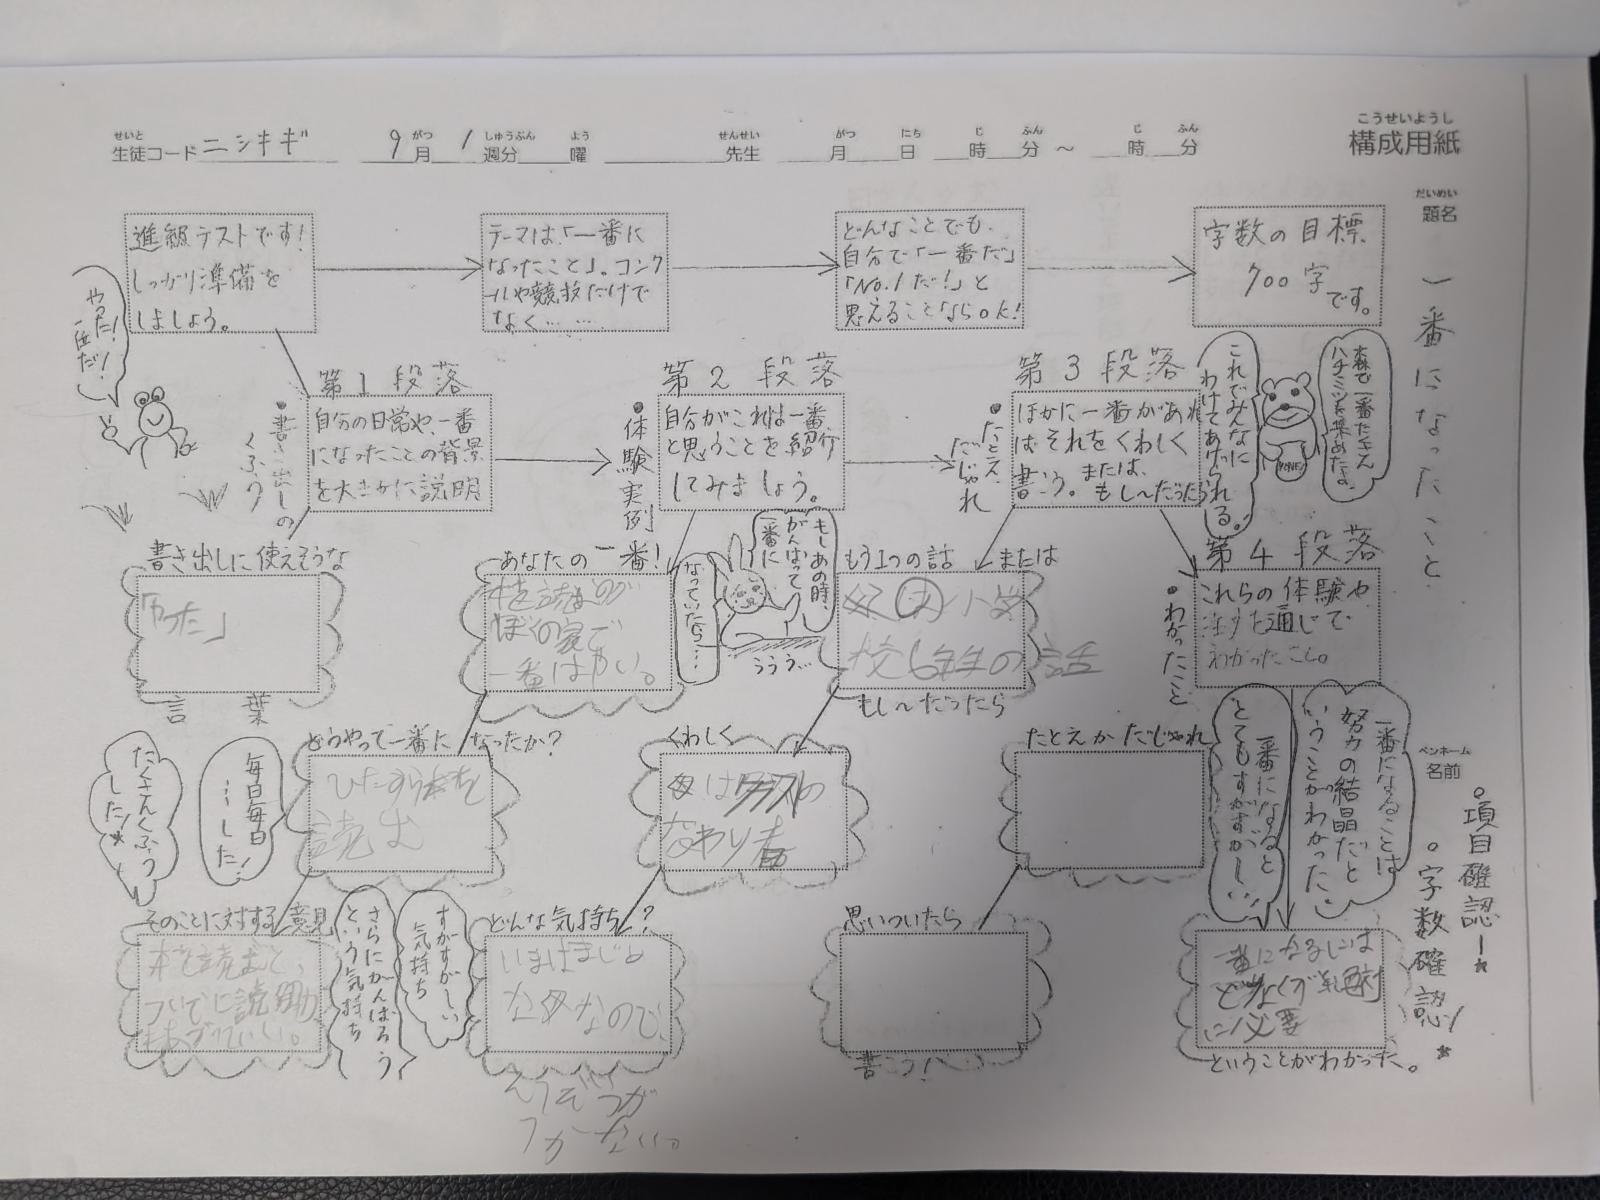 せいと
生徒コード ニシキギ
9 がつ 月 1 しゅうぶん 週分 よう 曜
せんせい 先生
がつ 月 にち 日 じ 時 ふん 分 ～ じ 時 ふん 分
こうせいようし
構成用紙
だいめい
題名
一番になったこと
ペンネーム
名前
。項目確認！*
。字数確認！*
進級テストです！
しっかり準備を
しましょう。
テーマは、「一番に
なったこと」。コンク
ールや競技だけで
なく……
どんなことでも、
自分で「一番だ」
「No.1だ！」と
思えることならOK！
字数の目標
700字
です。
やった！
一位だ！
第1段落
自分の日常や、一番
になったことの背景
を大まかに説明
•書き出しの
くふう
第2段落
自分がこれは一番
と思うことを紹介
してみましょう。
•体験実例
第3段落
ほかに一番があれ
ばそれをくわしく
書こう。または、
もし〜だったら
•たとえ、
だじゃれ
これでみんなに
わけてあげられる。
森で一番たくさん
ハチミツを集めたよ。
HONEY
第4段落
これらの体験や
を通じて
わかったこと。
•わかったこと
書き出しに使えそうな
「やった」
言葉
あなたの一番！
本を読むのが
ぼくの家で
一番はやい。
もしあの時、
がんばって
一番に
なっていたら…
ううう…
もう1つの話 または
母の小学
校6年生の話
もし〜だったら
どうやって一番になったか？
ひたすら本を
読む
毎日毎日
…した！
たくさんくふう
した！*
くわしく
母はクラスの
たとえかだじゃれ
一番になると
とてもすがすがしい
一番になることは
努力の結晶だと
いうことがわかった。
そのことに対する意見
本を読むと、
ついでに読
さらにがんばろう
という気持ち
すがすがしい
気持ち
どんな気持ち？
いまはまじめ
な母なので、
そうぞうが
つかない。
思いついたら
書こう！
一番になるには
に必要
ということがわかった。